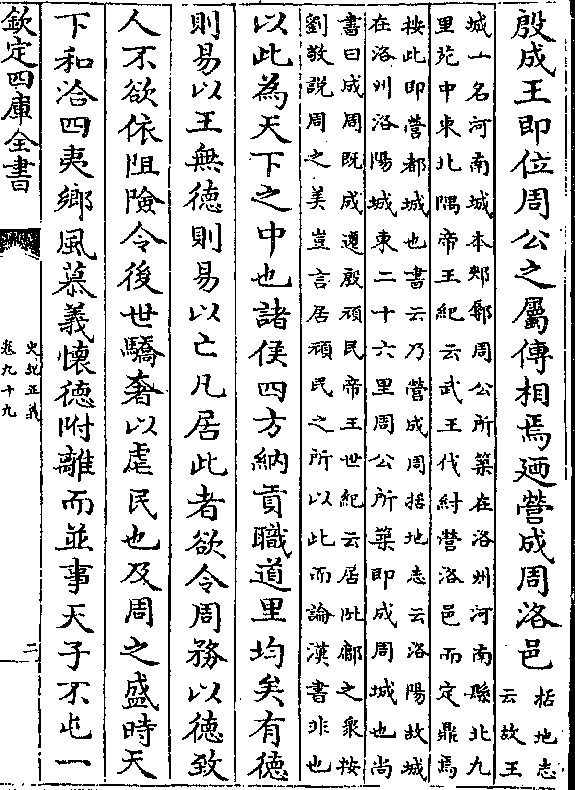 殷成王即位周公之屬傅相焉廼營成周洛邑
括地志
云故王
城一名河南城本郟鄏周公所築在洛州河南縣北九
里苑中東北隅帝王紀云武王伐紂營洛邑而定鼎焉
按此即營都城也書云乃營成周括地志云洛陽故城
在洛州洛陽城東二十六里周公所築即成周城也尚
書曰成周既成遷殷頑民帝王世紀云居邶鄘之衆按
劉敬說周之美豈言居頑民之所以此而論漢書非也
以此為天下之中也諸侯四方納貢職道里均矣有德
則易以王無德則易以亡凡居此者欲令周務以德致
人不欲依阻險令後世驕奢以虐民也及周之盛時天
下和洽四夷鄉風慕義懷德附離而並事天子不屯一
欽定四庫全書
史記正義
卷九十九
二